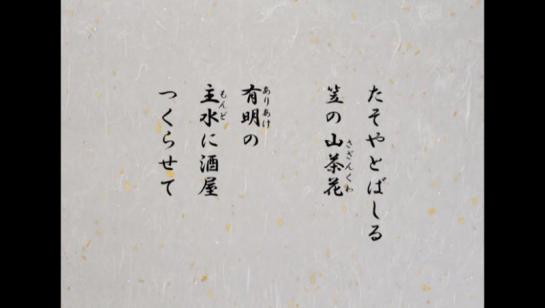 たそやとばしる
笠の山茶花
有明の
主水に酒屋
つくらせて